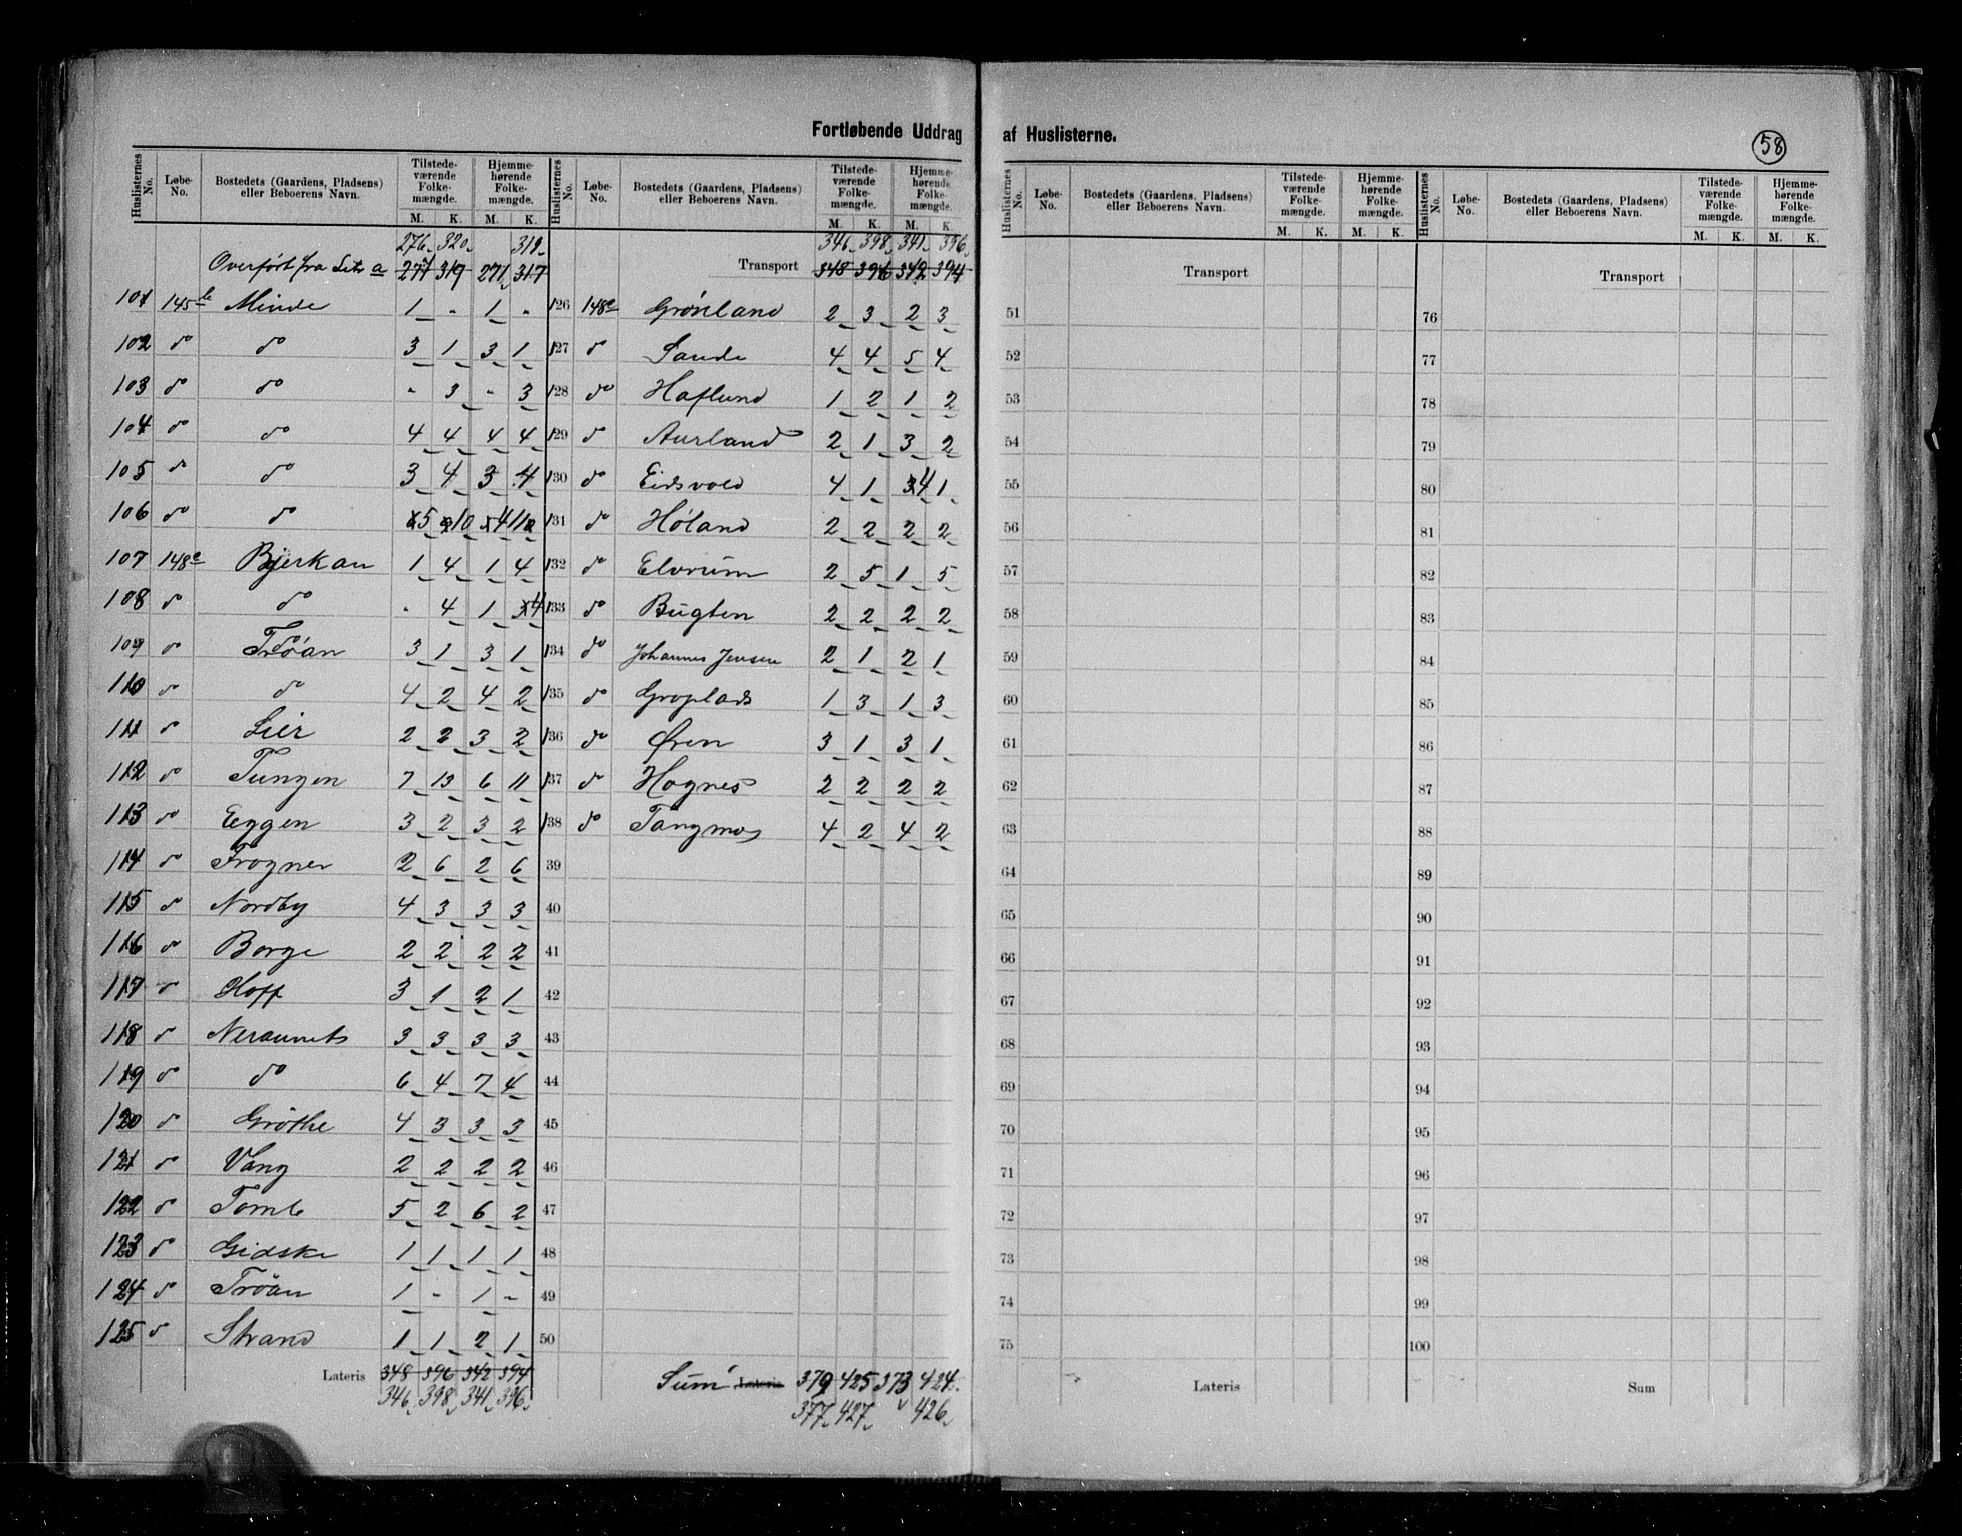 Fortløbende Uddrag af Huslisterne.
58
Huslisternes No. Løbe-No. Bostedets (Gaardens, Pladsens) eller Beboerens Navn. Tilstedeværende Folkemængde. M. K. Hjemmehørende Folkemængde. M. K.
276 320 318
Overført fra Litr a 277 319 271 317
101 145b Minde 1 - 1 -
102 do do 3 1 3 1
103 do do - 3 - 3
104 do do 4 4 4 4
105 do do 3 4 3 4
106 do do 5 10 4 11
107 148e Bjerkan 1 4 1 4
108 do do - 4 1 4
109 do Trøan 3 1 3 1
110 do do 4 2 4 2
111 do Lier 2 2 3 2
112 do Tungen 7 13 6 11
113 do Eggen 3 2 3 2
114 do Frogner 2 6 2 6
115 do Nordby 4 3 3 3
116 do Borge 2 2 2 2
117 do Hoff 3 1 2 1
118 do Neraunets 3 3 3 3
119 do do 6 4 7 4
120 do Grøthe 4 3 3 3
121 do Vang 2 2 2 2
122 do Tomb 5 2 6 2
123 do Gidske 1 1 1 1
124 do Trøan 1 - 1 -
125 do Strand 1 1 2 1
Lateris 348 396 342 394
346 398 341 396
Huslisternes No. Løbe-No. Bostedets (Gaardens, Pladsens) eller Beboerens Navn. Tilstedeværende Folkemængde. M. K. Hjemmehørende Folkemængde. M. K.
346 398 341 396
Transport 348 396 342 394
126 148e Grønland 2 3 2 3
127 do Sande 4 4 5 4
128 do Haflund 1 2 1 2
129 do Aurland 2 1 3 2
130 do Eidsvold 4 1 4 1
131 do Høland 2 2 2 2
132 do Elvrum 2 5 1 5
133 do Bugten 2 2 2 2
134 do Johannes Jensen 2 1 2 1
135 do Groplads 1 3 1 3
136 do Øren 3 1 3 1
137 do Hognes 2 2 2 2
138 do Tangmo 4 2 4 2
39
40
41
42
43
44
45
46
47
48
49
50
Sum Lateris 379 425 373 424
377 427 426
Huslisternes No. Løbe-No. Bostedets (Gaardens, Pladsens) eller Beboerens Navn. Tilstedeværende Folkemængde. M. K. Hjemmehørende Folkemængde. M. K.
Transport
51
52
53
54
55
56
57
58
59
60
61
62
63
64
65
66
67
68
69
70
71
72
73
74
75
Lateris
Huslisternes No. Løbe-No. Bostedets (Gaardens, Pladsens) eller Beboerens Navn. Tilstedeværende Folkemængde. M. K. Hjemmehørende Folkemængde. M. K.
Transport
76
77
78
79
80
81
82
83
84
85
86
87
88
89
90
91
92
93
94
95
96
97
98
99
100
Sum